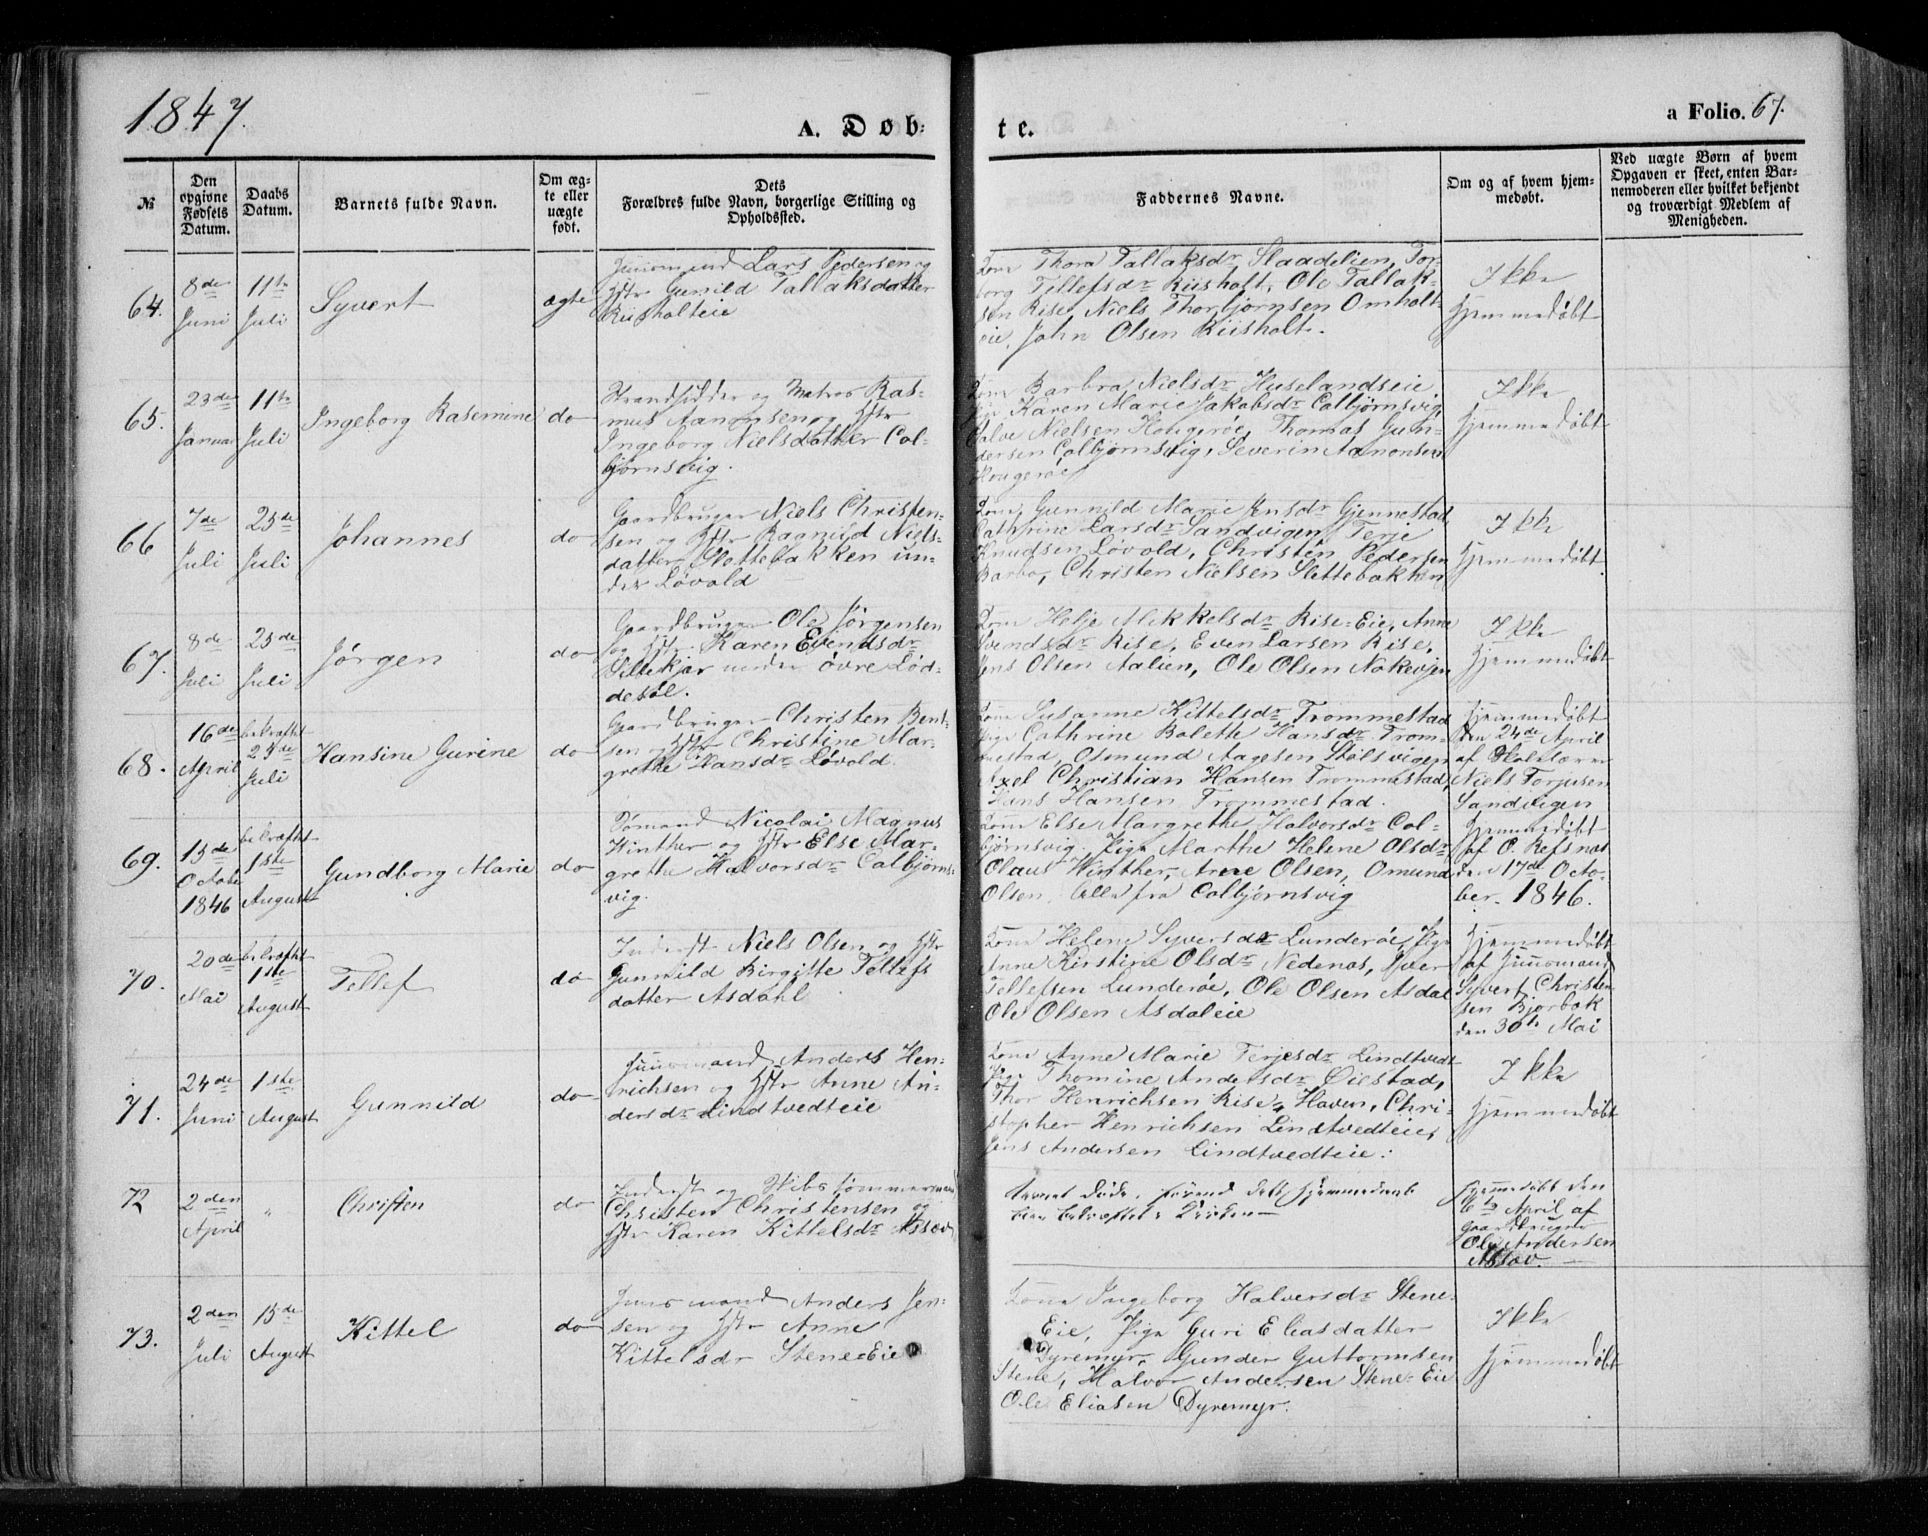 1847.
A. Døb=
te.
a Folio. 67.
№
Den opgivne Fødsels Datum.
Daabs Datum.
Barnets fulde Navn.
Om ægte eller uægte født.
Dets Forældres fulde Navn, borgerlige Stilling og Opholdssted.
Faddernes Navne.
Om og af hvem hjemmedøbt.
Ved uægte Børn af hvem Opgaven er skeet, enten Barnemoderen eller hvilket bekjendt og troværdigt Medlem af Menigheden.
64.
8de Juni
11te Juli
Syvert
ægte
Huusmand Lars Pedersen og
Hstr Gunild Tallaksdatter
Riisholteie
Kone Thora Tallaksdr Slaadelien, Tor-
borg Tellefsdr Riisholt, Ole Tallak-
sen Rise, Niels Thorbjørnsen Omholt-
eie, John Olsen Riisholt.
Ikke
hjemmedøbt
65.
23de Januar
11te Juli
Ingeborg Rasemine
do
Strandsidder og Matros Ras-
mus Aanonsen og Hstr
Ingeborg Nielsdatter Col-
bjørnsvig.
Kone Barbra Nielsdr Huselandseie
Pige Karen Marie Jakobsdr Colbjørnsvig,
Salve Nielsen Hougerøe, Thomas Gun-
dersen Colbjørnsvig, Severin Aanonsen
Hougerøe
Ikke
hjemmedøbt
66
7de Juli
25de Juli
Johannes
do
Gaardbruger Niels Christen-
sen og Hstr Ragnild Niels-
datter Slottebakken un-
der Løvold
Kone Gunnild Marie Jensdr Gjennestad
Cathrine Larsdr Sandvigen, Terje
Knudsen Løvold, Christen Pedersen
Barbo, Christen Nielsen Slettebakken
Ikke
hjemmedøbt.
67.
8de Juli
25de Juli
Jørgen
do
Gaardbruger Ole Jørgensen
og Hstr Karen Evendsdr
under øvre Lød-
desøl.
Kone Helje Mikkelsdr Rise-Eie, Anne
Evendsdr Rise, Even Larsen Rise,
Jens Olsen Aalien, Ole Olsen Nakevjen
Ikke
hjemmedøbt
68.
16de April
bekræftet 25de Juli
Hansine Gurine
do
Gaardbruger Christen Bent-
sen og Hstr Christine Mar-
grethe Hansdr Løvold.
Kone Susanne Kittelsdr Trommestad
Pige Cathrine Bolette Hansdr Trom-
mestad, Osmund Aagesen Stølsvigen
Axel Christian Hansen Trommestad,
Hans Hansen Trommestad.
Hjemmedøbt
den 24de April
af Skolelærer
Niels Torjusen
Sandvigen
69.
15de Octobr 1846
bekræftet 1ste August
Gundborg Marie
do
Sømand Nicolai Magnus
Winther og Hstr Else Mar-
grethe Halvorsdr Colbjørns-
vig.
Kone Else Margrethe Halvorsdr Col-
bjørnsvig. Pige Marthe Helene Olsdr
Olaus Winther, Arne Olsen, Omund
Olsen. Alle fra Colbjørnsvig
Hjemmedøbt
af O. Refsnæs
den 17de Octo-
ber. 1846.
70.
20de Mai
bekræftet 1ste August
Tellef
do
Inderst Niels Olsen og Hstr
Gunnild Birgitte Tellefs
datter Asdahl
Kone Helene Syversdr Lunderøe, Pige
Anne Kirstine Olsdr Nedenæs, Syver
Tellefsen Lunderøe, Ole Olsen Asdal
Ole Olsen Asdaleie
Hjemmedøbt
af Huusmand
Syvert Christen
sen Bjorbæk
den 30te Mai
71.
24de Juni
1ste August
Gunnild
do
Huusmand Anders Hen-
richsen og Hstr Anne An-
dersdr Lindtvedteie
Kone Anne Marie Terjesdr Lindtvedt
Pige Thomine Andersdr Øiestad,
Thor Henrichsen Rise, Haven, Chri-
stopher Henrichsen Lindtvedteie,
Jens Andersen Lindtvedteie.
Ikke
hjemmedøbt
72
2den April
"
Christen
do
Inderst og Skibstømmermand
Christen Christensen og
Hstr Karen Kittelsdr Assæv
Barnet døde, førend dets hjemmedaab
blev bekræftet i Kirken
Hjemmedøbt den
6te April af
Gaardbruger
Ole Andersen
Assæv.
73.
2den Juli
15de August
Kittel
do
Huusmand Anders Jen-
sen og Hstr Anne
Kittelsdr Stene-Eie
Kone Ingeborg Halversdr Stene-
Eie, Pige Guri Eliasdatter
Dyremyr, Gunder Guttormsen
Stene, Halvor Andersen Stene-Eie
Ole Eliasen Dyremyr.
Ikke
hjemmedøbt